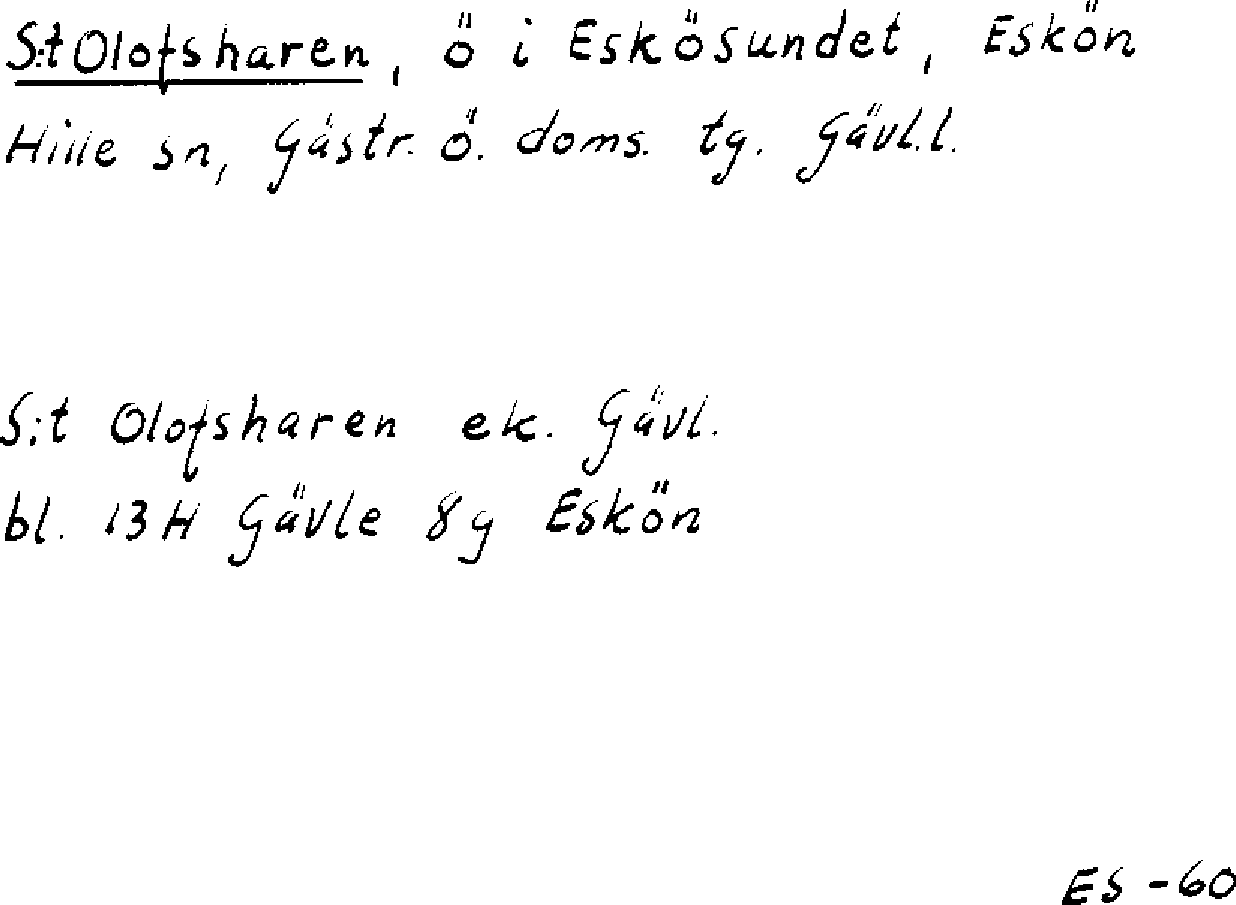 S:t Olofsharen, ö i Eskösundet, Eskön
Hille sn, Gästr. ö. doms. tg. Gävl.l.
S:t Olofsharen ek. Gävl.
bl. 13H Gävle 8g Eskön
ES -60